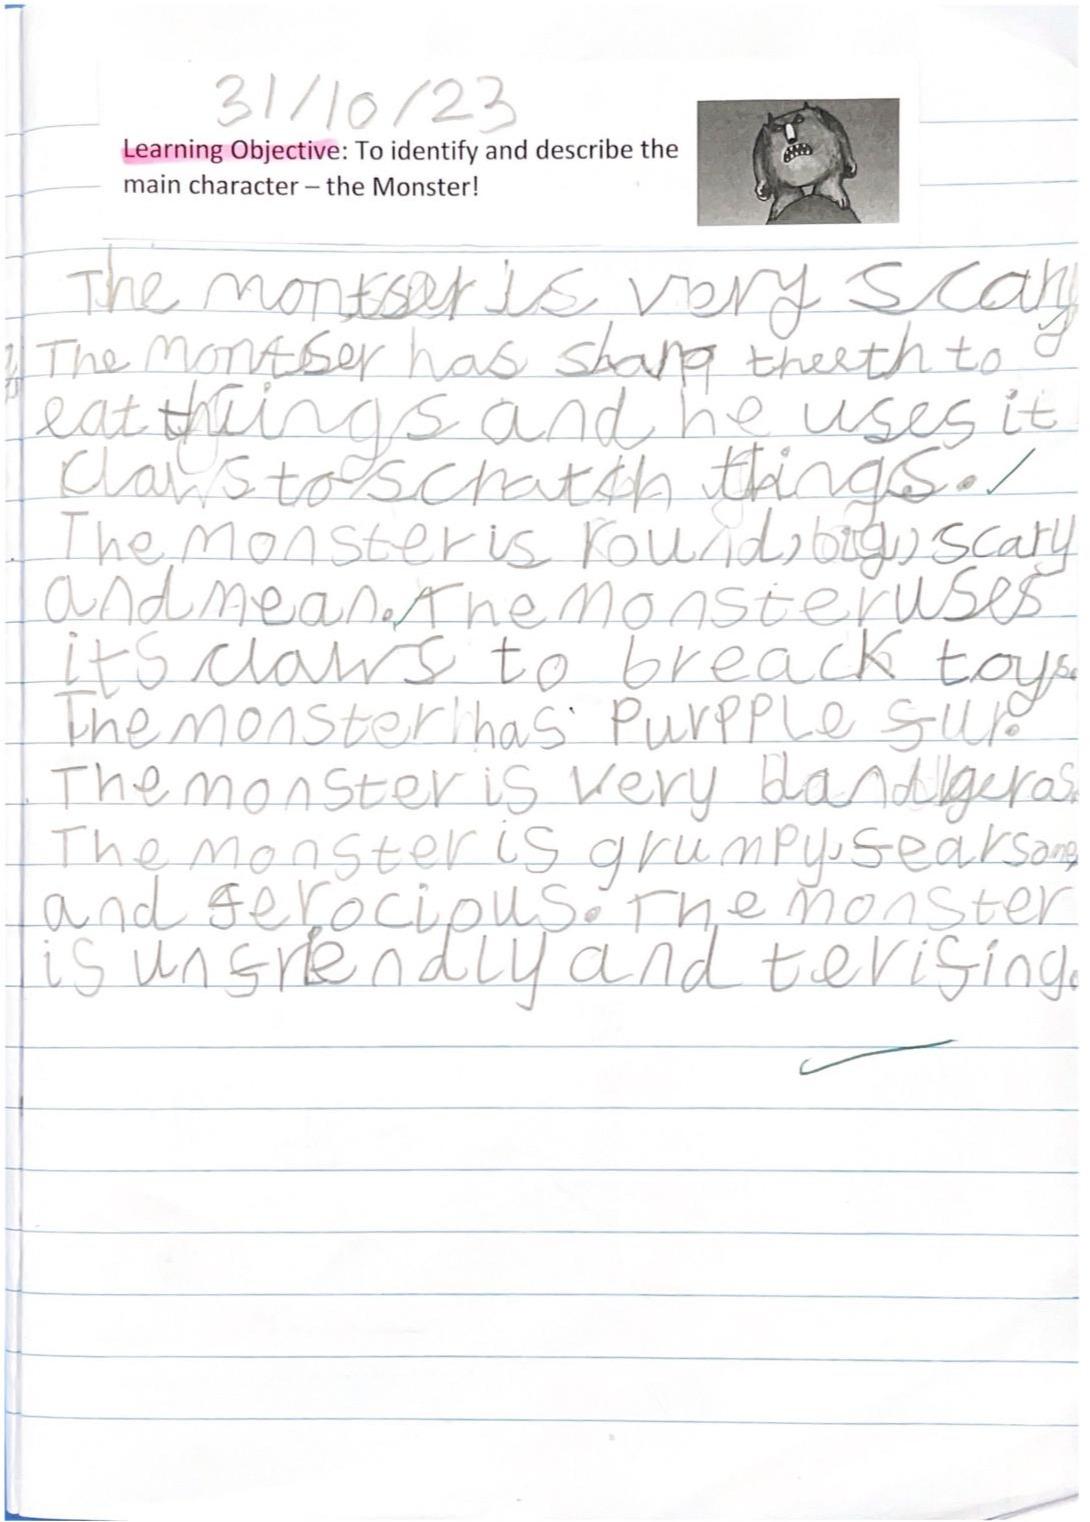 31/10/23
Learning Objective: To identify and describe the
main character – the Monster!
The montser is very scary
The montser has sharp theeth to
eat things and he uses it
claws to scratch things.
The monster is round, big, scary
and mean. The monster uses
its claws to breack toys.
The monster has purpple fur.
The monster is very dandgeros.
The monster is grumpy, fearsome
and ferocious. The monster
is unfrendly and terifing.